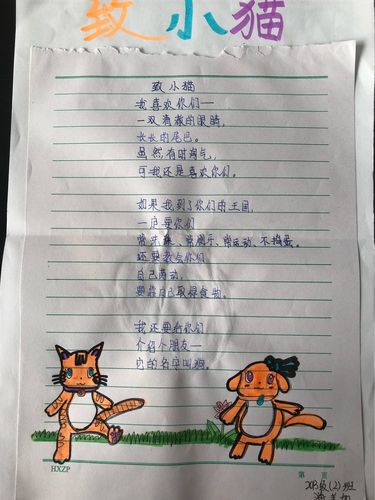 致小猫
致小猫
我喜欢你们—
一双清澈的眼睛,
长长的尾巴。
虽然有时淘气,
可我还是喜欢你们。
如果我到了你们的王国,
一定要你们
常洗澡、常刷牙、常运动、不捣蛋。
还要教会你们
自己劳动,
要靠自己取得食物。
我还要和你们
介绍个朋友—
它的名字叫狗。
HXZP
第 页
级(2)班